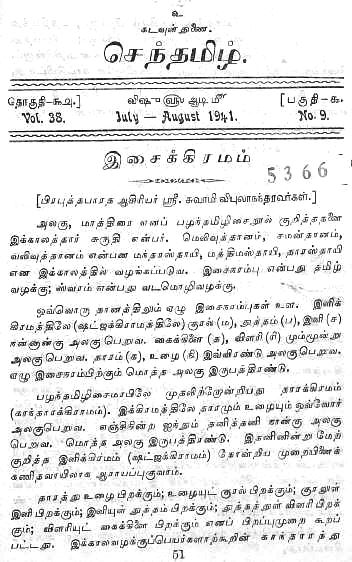 உ
கடவுள் துணை.
செந்தமிழ்.
தொகுதி-௩௮.] விஷு ஆடி [பகுதி-௯.
Vol. 38. July — August 1941. No. 9.
இசைக்கிரமம்
5366
[பிரபுத்தபாரத ஆசிரியர் ஸ்ரீ. சுவாமி விபுலாநந்தரவர்கள்.]
அலகு, மாத்திரை எனப் பழந்தமிழிசைநூல் குறித்ததனை
இக்காலத்தார் சுருதி என்பர். மெலிவுத்தானம், சமன்தானம்,
வலிவுத்தானம் என்பன மந்ரஸ்தாயி, மத்திமஸ்தாயி, தாரஸ்தாயி
என இக்காலத்தில் வழங்கப்படுவ. இசைநரம்பு என்பது தமிழ்
வழக்கு; ஸ்வரம் என்பது வடமொழிவழக்கு.
ஒவ்வொரு தானத்திலும் ஏழு இசைநரம்புகள் உள. இளிக்
கிரமத்திலே (ஷட்ஜக்கிராமத்திலே) குரல் (ம), துத்தம் (ப), இளி (ச)
நன்னான்கு அலகு பெறுவ. கைக்கிளை (த), விளரி (ரி) மும்மூன்று
அலகு பெறுவ. தாரம் (க), உழை (நி) இவ்விரண்டு அலகுபெறுவ.
ஏழு இசைநரம்பிற்கும் மொத்த அலகு இருபத்திரண்டு.
பழந்தமிழிசைமரபிலே முதலிற்றோன்றிபது தாரக்கிரமம்
(காந்தாரக்கிராமம்). இக்கிரமத்திலே தாரமும் உழையும் ஒவ்வோர்
அலகுபெறுவ. எஞ்சிநின்ற ஐந்தும் தனித்தனி நான்கு அலகு
பெறுவ. மொத்த அலகு இருபத்திரண்டு. இதனினின்று மேற்
குறித்த இளிக்கிரமம் (ஷட்ஜக்கிராமம்) தோன்றிய முறையினைக்
கணிதவாயிலாக ஆராயப்புகுவாம்.
தாரத்து உழை பிறக்கும்; உழையுட் குரல் பிறக்கும்; குரலுள்
இளி பிறக்கும்; இளியுள் துத்தம் பிறக்கும்; துத்தத்துள் விளரி பிறக்
கும்; விளரியுட் கைக்கிளை பிறக்கும் எனப் பிறப்புமுறை கூறப்
பட்டது. இக்காலவழக்குப்பெயர்களாற்கூறின் காந்தாரத்து
51